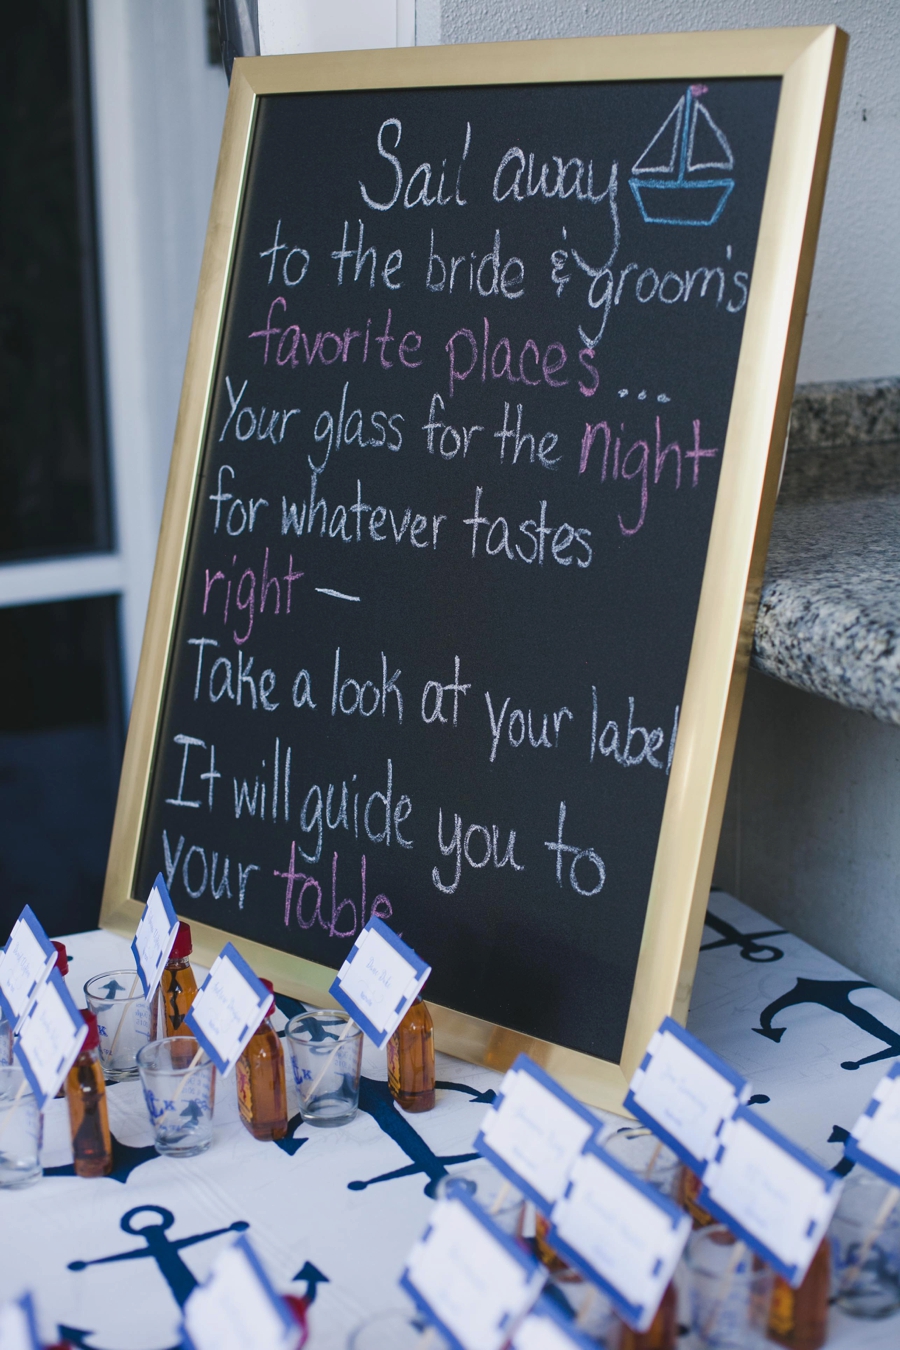 Sail away
to the bride & groom's
favorite places...
Your glass for the night
for whatever tastes
right —
Take a look at your label
It will guide you to
your table